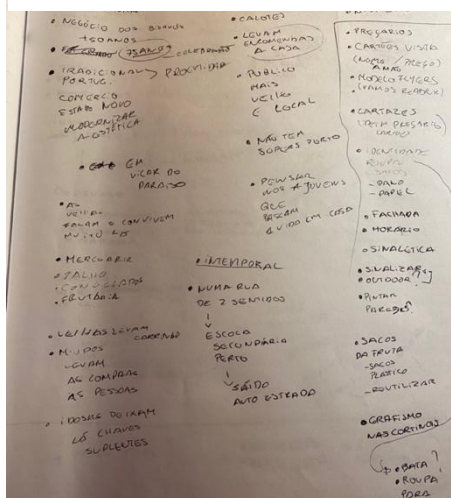 • NEGÓCIO DOS
+50 ANOS
(75 ANOS)
• TRADICIONAL
PORTUG.
COMÉRCIO
ESTADO NOVO
MODERNIZAR
A ESTÉTICA
• EM
VIGAR DO
PARAÍSO
• AS
FALAM E CONVIVEM
MUITO LÁ
• MERCEARIA
• TALHO
• CONGELADOS
• FRUTARIA
• MIÚDOS
LEVAM
AS COMPRAS
ÀS PESSOAS
• IDOSAS DEIXAM
LÁ CHAVES
SUPLENTES
• CALOTES
• LEVAM
ENCOMENDAS
A CASA
• PÚBLICO
MAIS
VELHO
E LOCAL
• NÃO TEM
SUPERS PERTO
• PENSAR
NOS + JOVENS
QUE
PASSAM
A VIDA EM CASA
• INTEMPORAL
• NUMA RUA
DE 2 SENTIDOS
ESCOLA
SECUNDÁRIA
PERTO
SAÍDA
AUTO ESTRADA
• PREÇÁRIOS
• CARTÕES VISITA
• MODELO FLYERS
• CARTAZES
• IDENTIDADE
ROUPA
SACOS
- PANO
- PAPEL
• FACHADA
• HORÁRIO
• SINALÉTICA
• SINALIZAR
• OUTDOOR?
• PINTAR
PAREDES?
• SACOS
DA FRUTA
- SACOS
PLÁSTICO
- REUTILIZAR
• GRAFISMO
NAS CORTINAS
• BATA?
• ROUPA
PARA